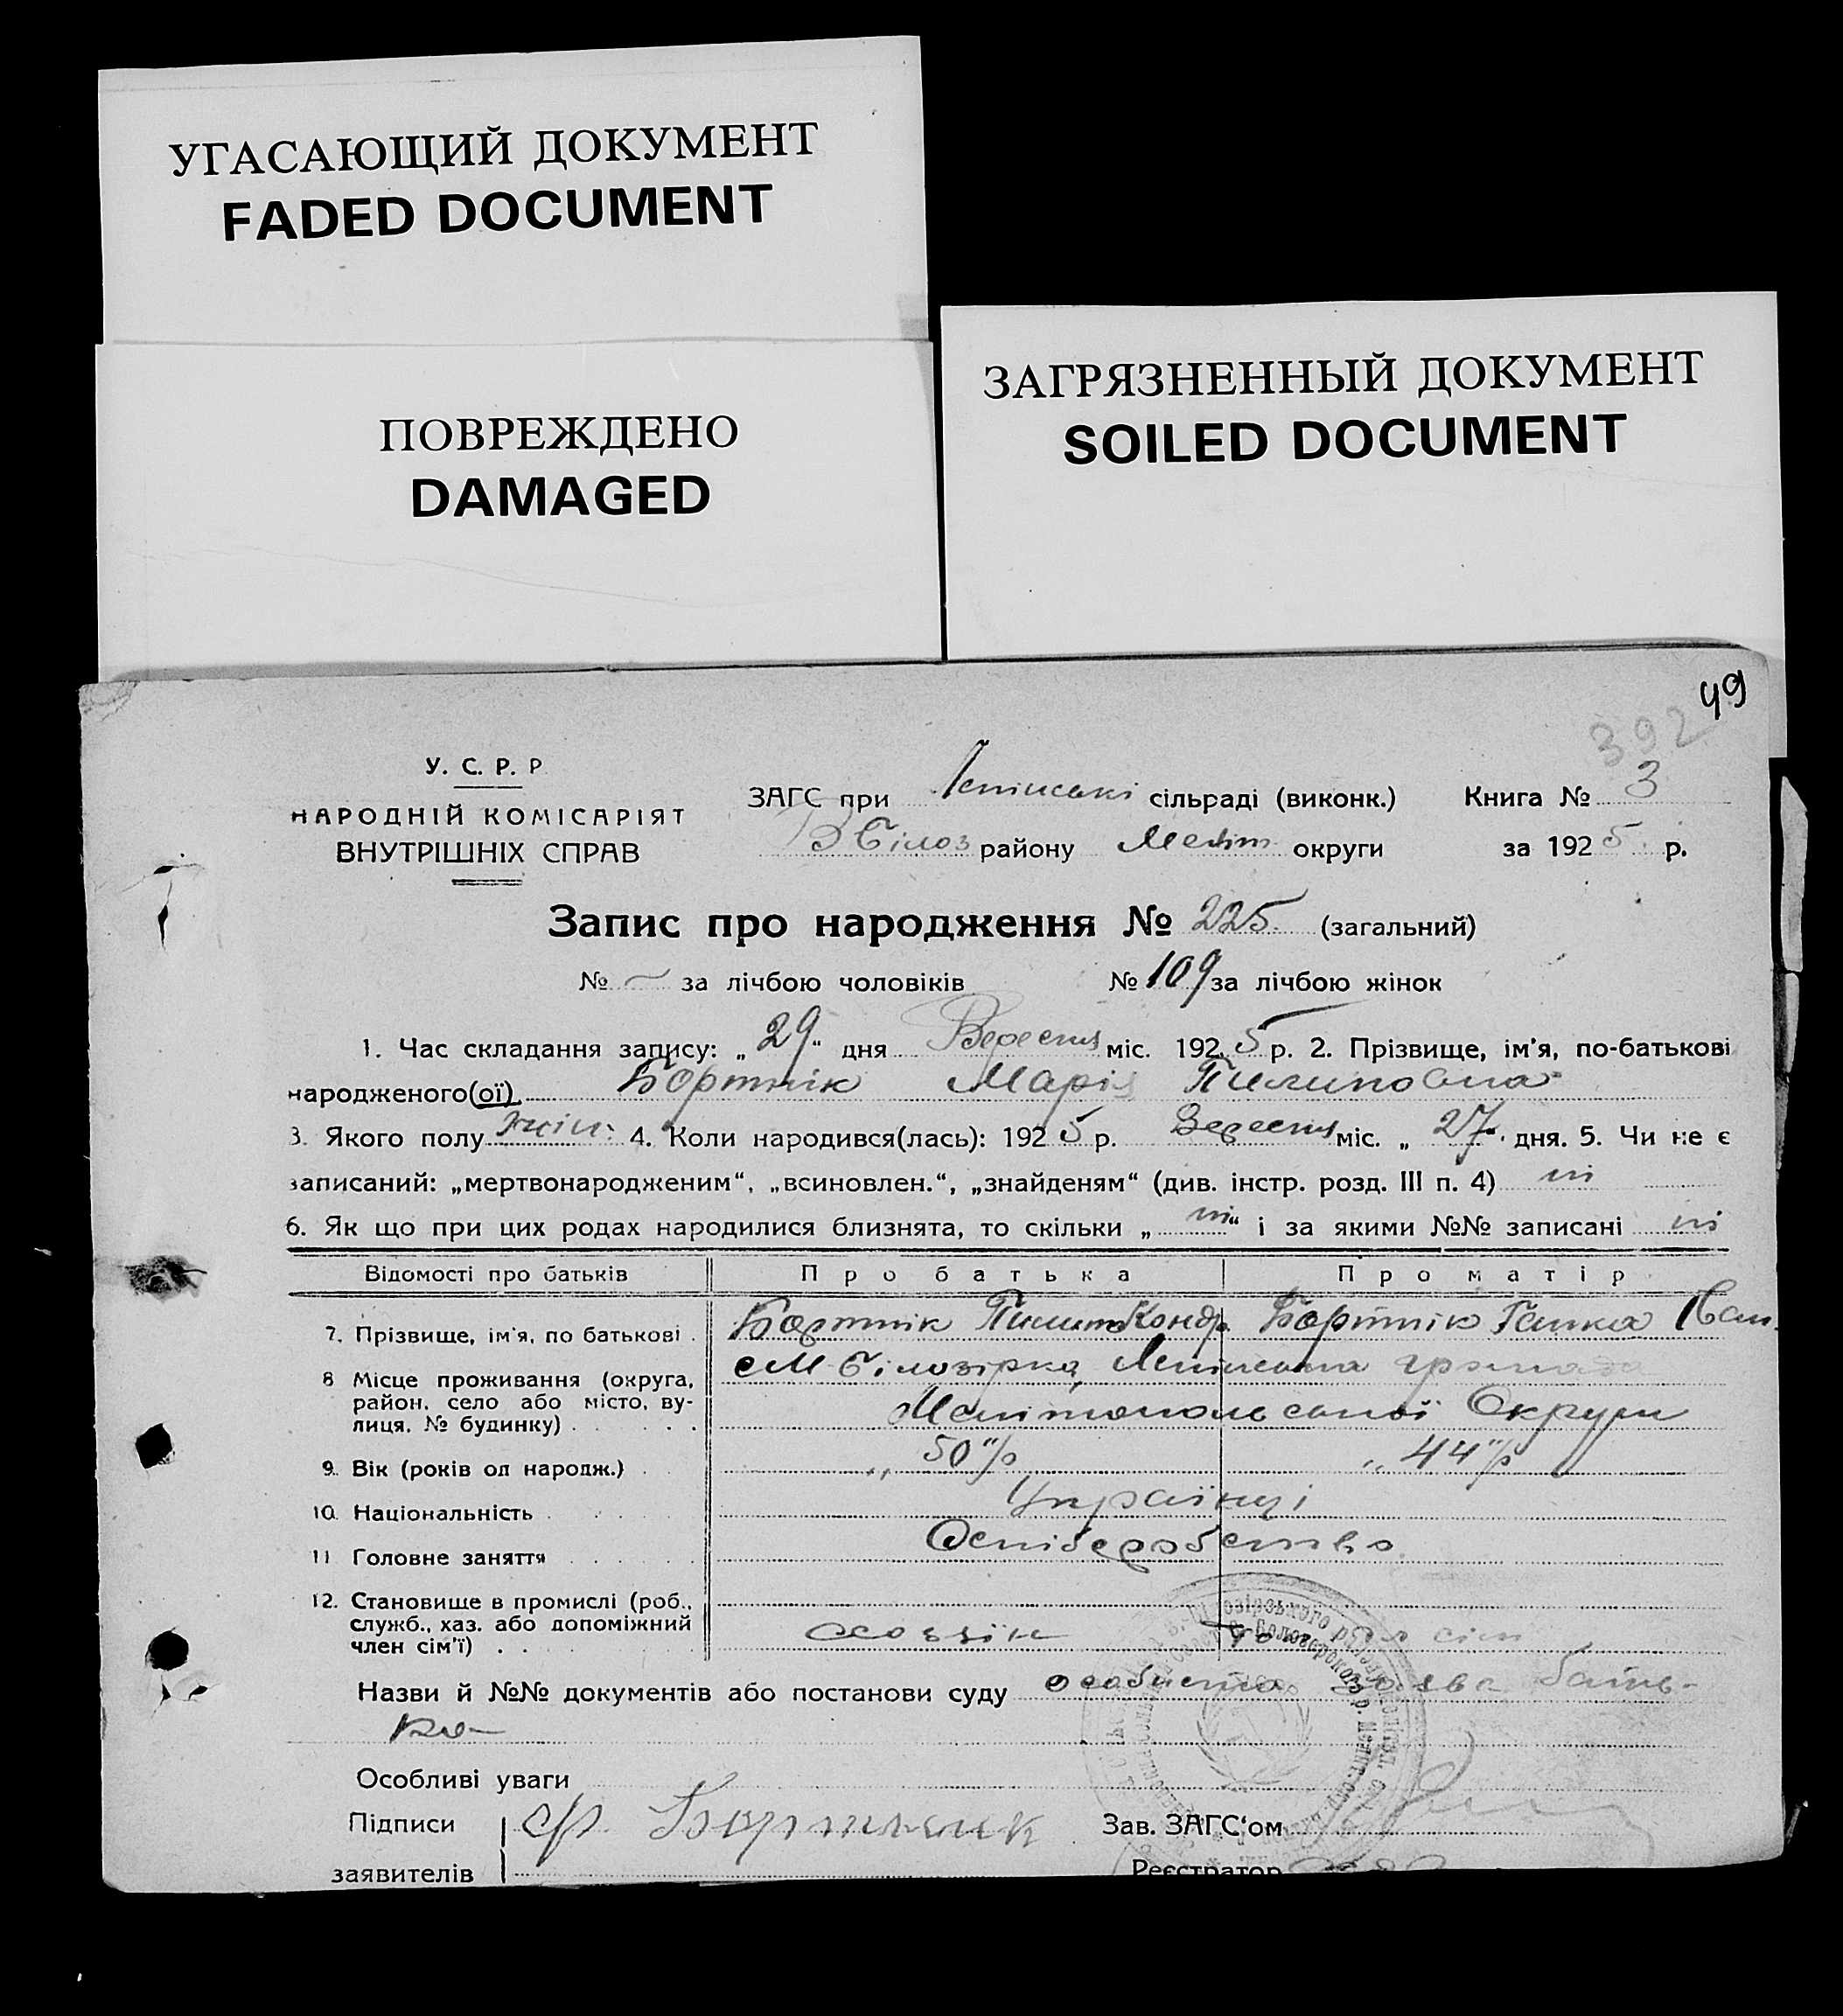 УГАСАЮЩИЙ ДОКУМЕНТ
FADED DOCUMENT
ПОВРЕЖДЕНО
DAMAGED
ЗАГРЯЗНЕННЫЙ ДОКУМЕНТ
SOILED DOCUMENT
49
392
У. С. Р. Р
НАРОДНІЙ КОМІСАРІЯТ
ВНУТРІШНІХ СПРАВ
ЗАГС при сільраді (виконк.) Книга № 3
В Білоз району Меліт округи за 1925 р.
Запис про народження № 225 (загальний)
№ – за лічбою чоловіків № 109 за лічбою жінок
1. Час складання запису: „29“ дня Вересня міс. 1925 р. 2. Прізвище, ім'я, по-батькові
народженого(ої) Бортнік Марія Пилиповна
3. Якого полу жін. 4. Коли народився(лась): 1925 р. Вересня міс. „27“ дня. 5. Чи не є
записаний: „мертвонародженим“, „всиновлен.“, „знайденям“ (див. інстр. розд. III п. 4) ні
6. Як що при цих родах народилися близнята, то скільки „ні“ і за якими №№ записані ні
Відомості про батьків Про батька Про матір
7. Прізвище, ім'я, по батькові Бортнік Пилип Кондр. Бортнік Ганка
8 Місце проживання (округа, район, село або місто, вулиця, № будинку) М Білозірка, громада
Мелітопольської Округи
9. Вік (років од народж.) „50“ р „44“ р
10. Національність Українці
11 Головне заняття
12. Становище в промислі (роб., служб., хаз. або допоміжний член сім'ї) хоззїн
Назви й №№ документів або постанови суду особиста заява бать-
ка
Особливі уваги
Підписи Бортник Зав. ЗАГС'ом
заявителів Реєстратор